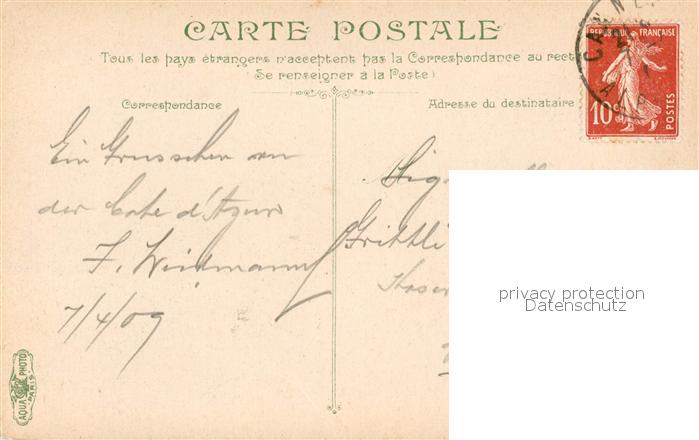 CARTE POSTALE
Tous les pays étrangers n'acceptent pas la Correspondance au recto
(Se renseigner à la Poste)
Correspondance
Adresse du destinataire
REPUBLIQUE FRANÇAISE
10
POSTES
CANNES
Ein Grüsschen von
der Cote d'Azur
7/4/09
AQUA PHOTO
PARIS
privacy protection
Datenschutz